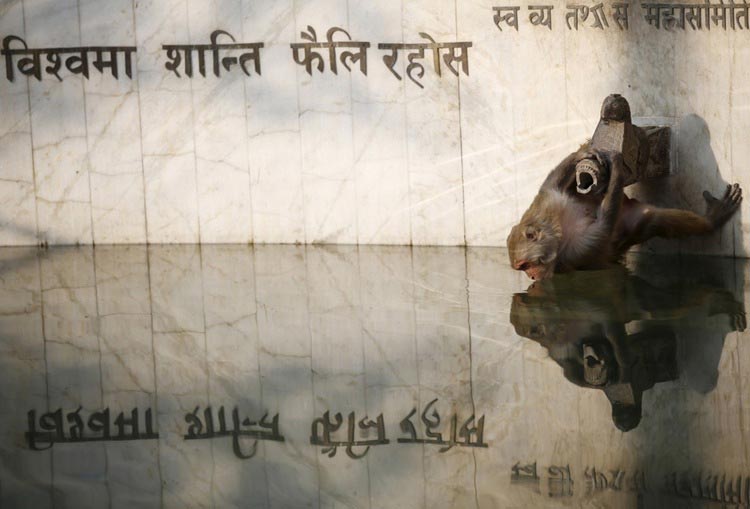 विश्वमा शान्ति फैलि रहोस
महासमिति